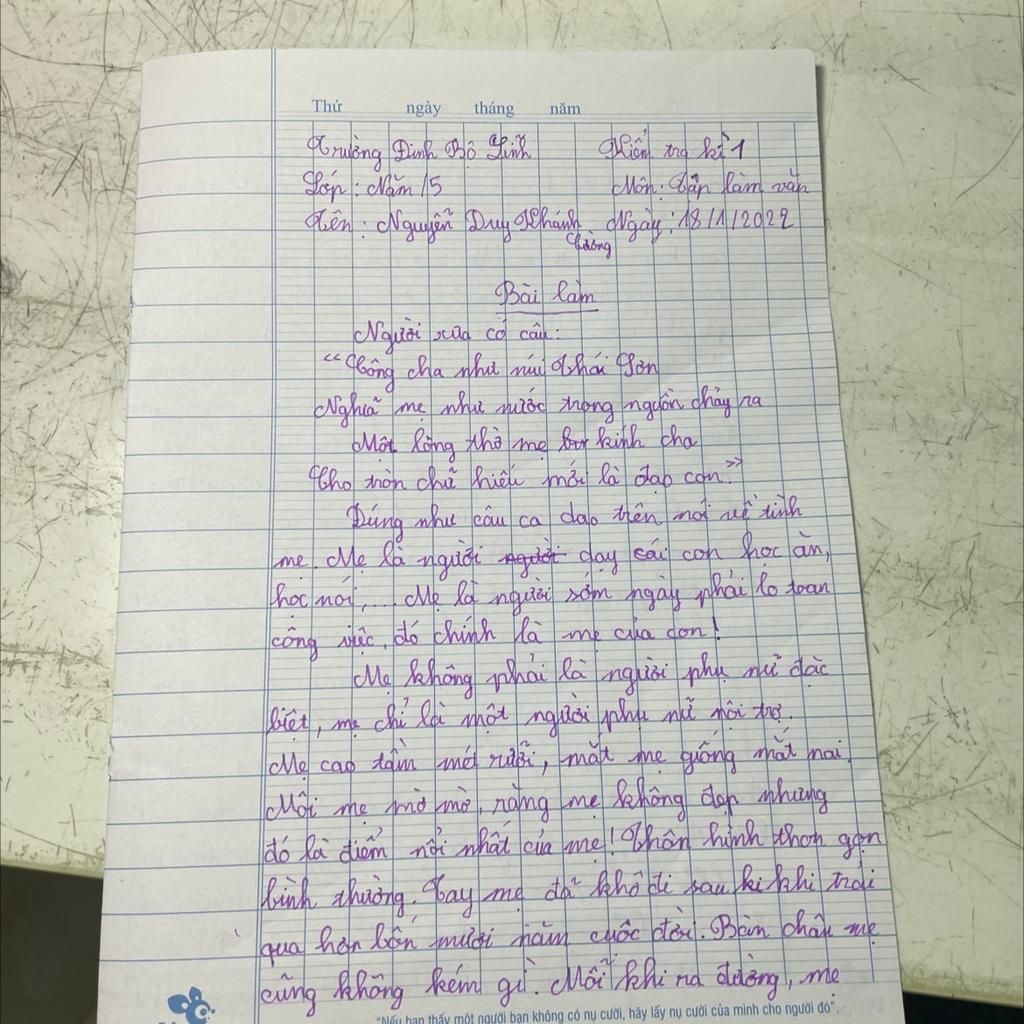 Thứ ngày tháng năm
Trường Đinh Bộ Lĩnh Kiểm tra kì 1
Lớp: Năm/5 Môn: Tập làm văn
Tên: Nguyễn Duy Khánh Ngày: 18/1/2022
Tường
Bài làm
Người xưa có câu:
"Công cha như núi Thái Sơn
Nghĩa mẹ như nước trong nguồn chảy ra
Một lòng thờ mẹ kính cha
Cho tròn chữ hiếu mới là đạo con"
Đúng như câu ca dao trên nói về tình
mẹ. Mẹ là người người dạy cái con học ăn,
học nói,... Mẹ là người sớm ngày phải lo toan
công việc, đó chính là mẹ của con!
Mẹ không phải là người phụ nữ đặc
biệt, mẹ chỉ là một người phụ nữ nội trợ.
Mẹ cao tầm mét rưỡi, mắt mẹ giống mắt nai.
Môi mẹ mờ mờ, răng mẹ không đẹp nhưng
đó là điểm nổi nhất của mẹ! Thân hình thon gọn
bình thường. Tay mẹ đã khô đi sau khi trải
qua hơn bốn mươi năm cuộc đời. Bàn chân mẹ
cũng không kém gì. Mỗi khi ra đường, mẹ
"Nếu bạn thấy một người bạn không có nụ cười, hãy lấy nụ cười của mình cho người đó".